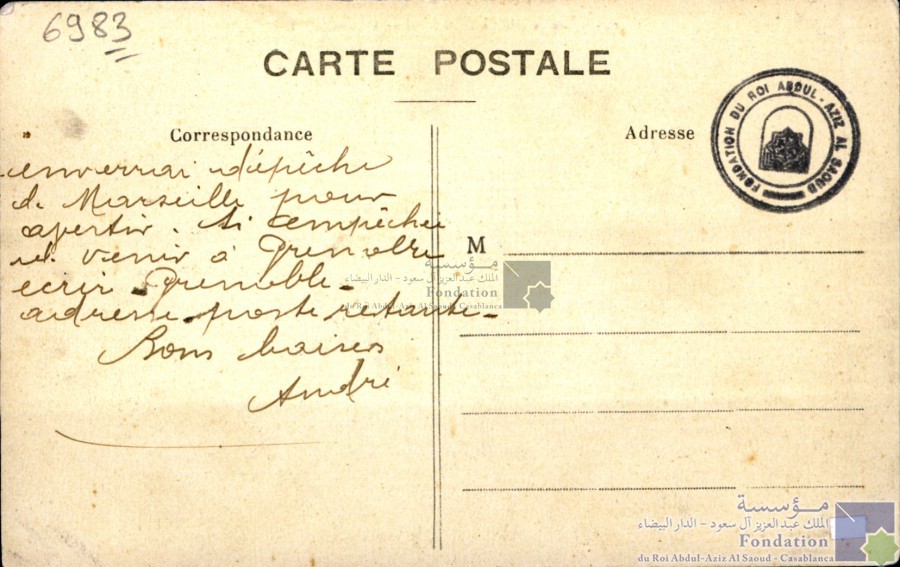 6983
CARTE POSTALE
Correspondance
Adresse
FONDATION DU ROI ABDUL-AZIZ AL SAOUD
enverrai dépêche
de Marseille pour
avertir. Si empêchée
de venir à Grenoble
ecrir Grenoble -
adresse poste restante -
Bons baisers
André
M
مؤسسة
الملك عبد العزيز آل سعود - الدار البيضاء
Fondation
du Roi Abdul-Aziz Al Saoud - Casablanca
مؤسسة
الملك عبد العزيز آل سعود - الدار البيضاء
Fondation
du Roi Abdul-Aziz Al Saoud - Casablanca